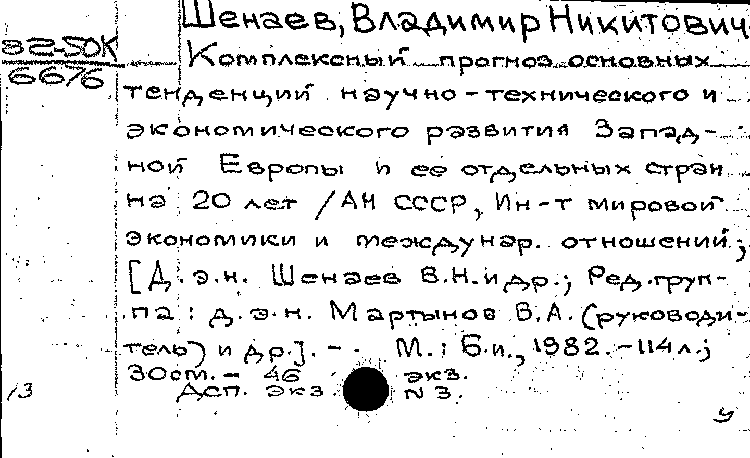 Шенаев, Владимир Никитович
82-50К
6676
Комплексный прогноз основных
тенденций научно-технического и
экономического развития Запад-
ной Европы и ее отдельных стран
на 20 лет /АН СССР, Ин-т мировой
экономики и междунар. отношений;
[Д.э.н. Шенаев В.Н. и др.; Ред. груп-
па: д.э.н. Мартынов В.А. (руководи-
тель) и др.]. - М.: Б.и., 1982. - 114 л.;
30 см. - 46 экз.
Дсп. экз. N 3.
13
У